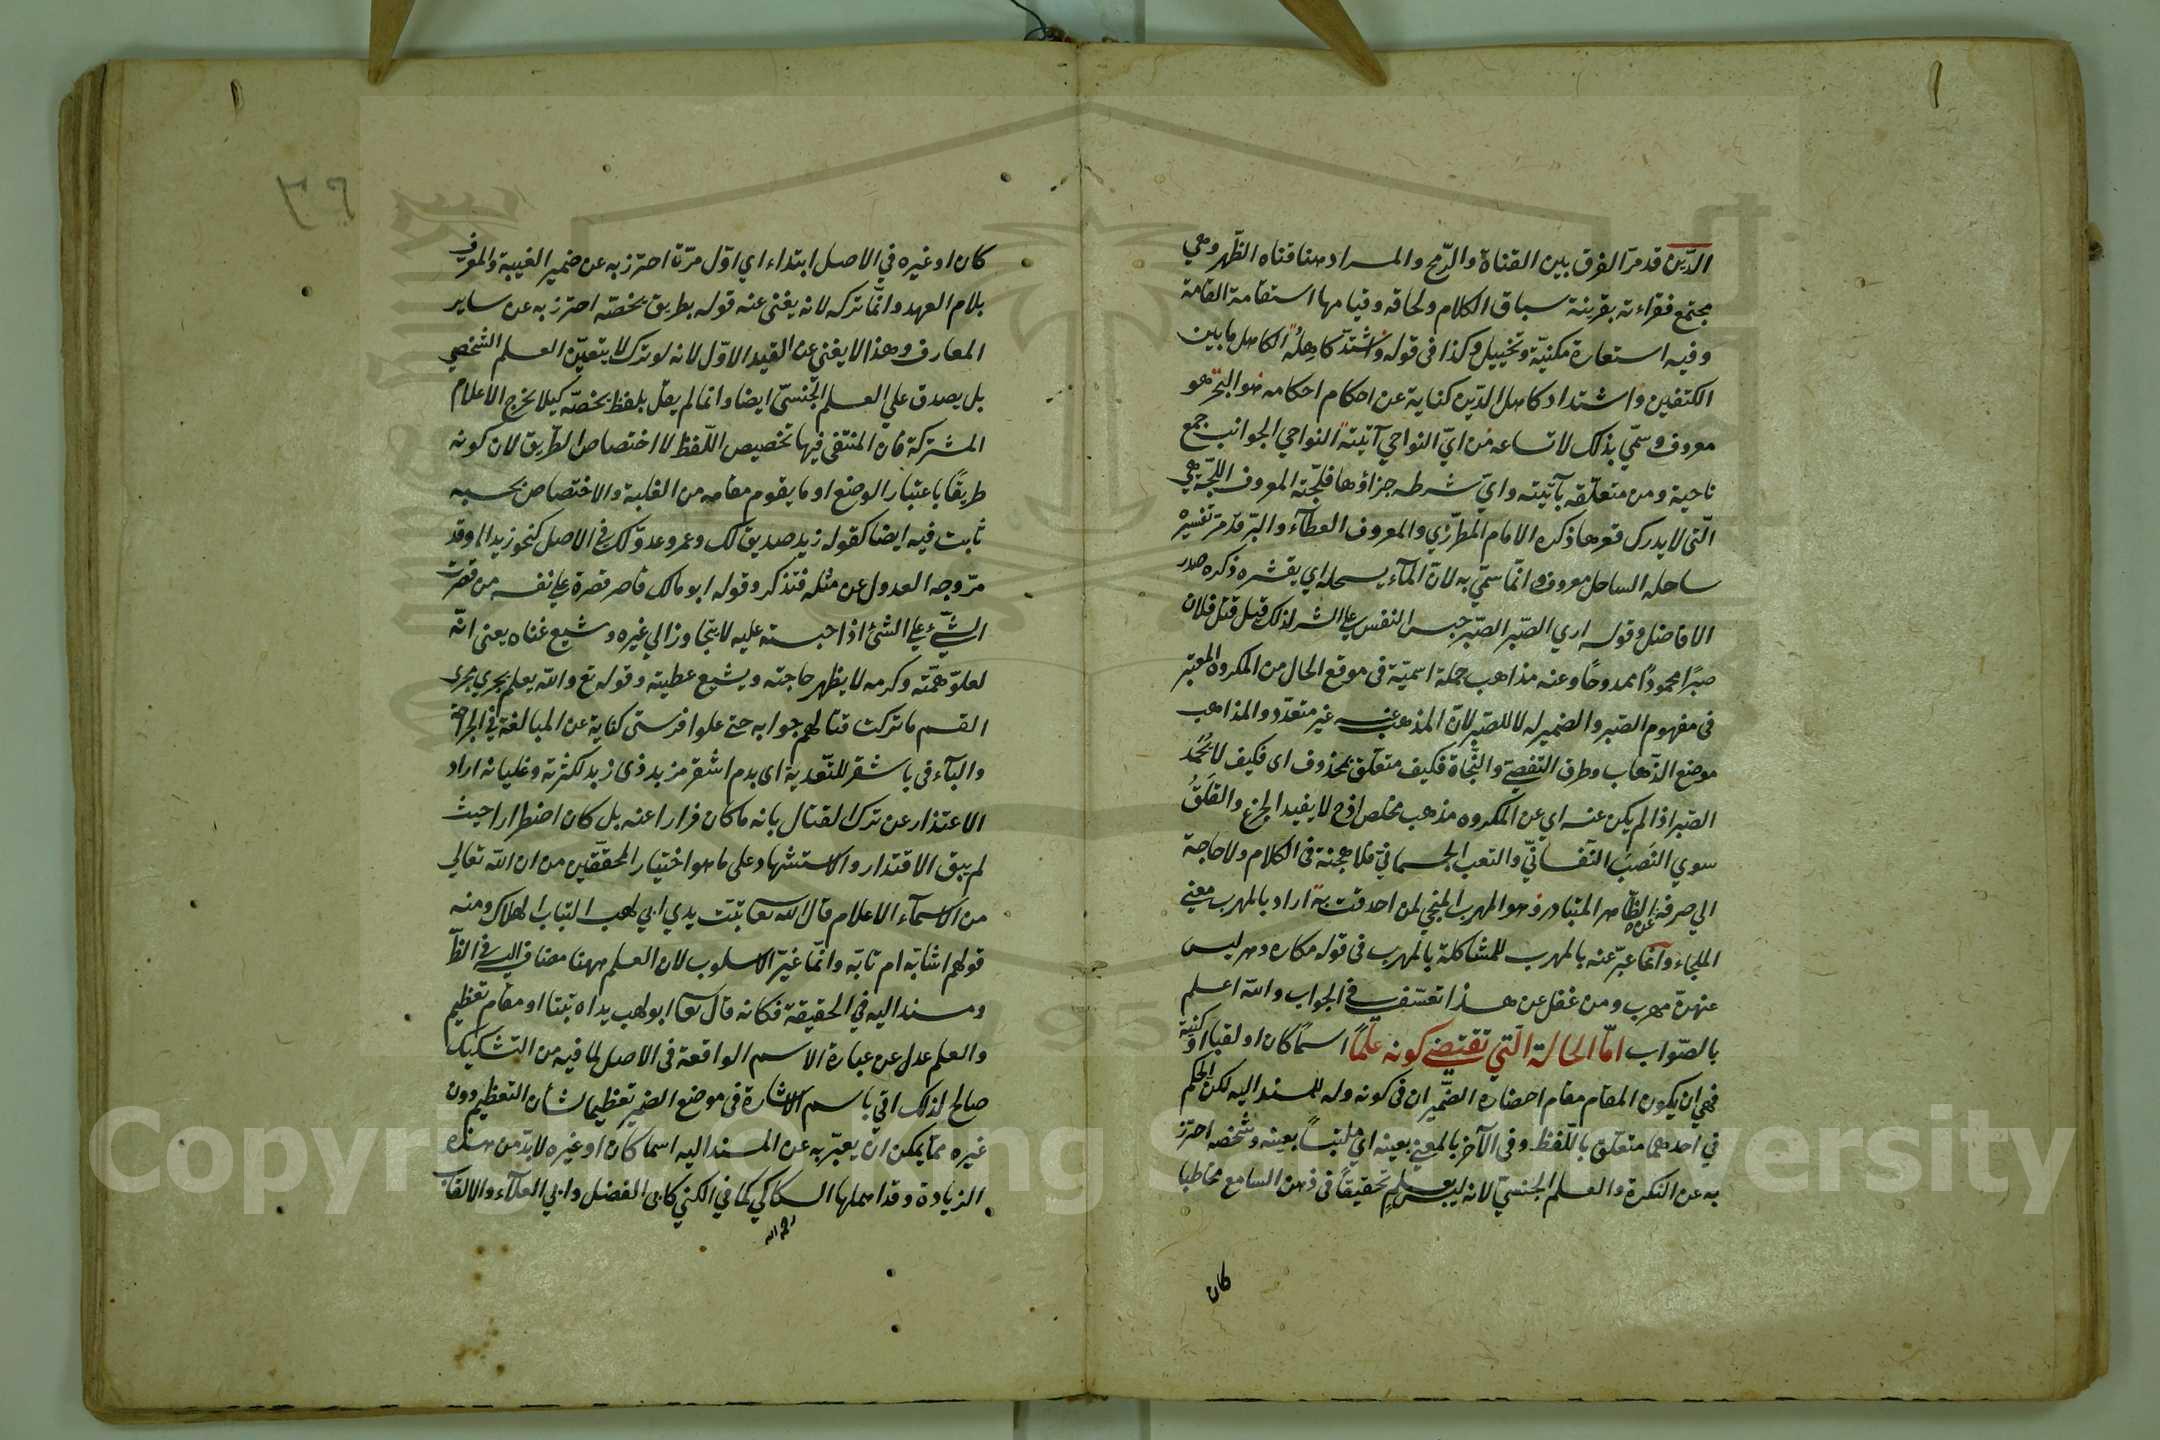 الدّين قد مرّ الفرق بين القناة والرّمح والمراد هنا قناه الظّهر وهي
مجتمع فقراته بقرينة سباق الكلام ولحاقه وقيامها استقامة القامة
وفيه استعارة مكنيّة وتخييل وكذا في قوله واشتدّ كاهله الكاهل ما بين
الكتفين واشتداد كاهل الدّين كناية عن احكام احكامه هو البحر هو
معروف وسمّي بذلك لاتساعه من ايّ النواحي آتيته النواحي الجوانب جمع
ناحية ومن متعلّقه بآتيته وايّ شرطه جزاؤها فلجّته المعروف اللجّة هي
الّتي لا يدرك قعرها ذكره الامام المطرّزي والمعروف العطآء والبرّ قد مرّ تفسيره
ساحله الساحل معروف وانّما سمّي به لانّ المآء يسحله اي يقشره ذكره صدر
الافاضل وقوله اري الصّبر الصّبر حبس النفس علي الشر لذلك قيل قتل فلان
صبرًا محمودًا ممدوحًا وعنه مذاهب جملة اسميّة في موقع الحال من المكروه المعتبر
في مفهوم الصّبر والضمير له لا للصّبر لانّ المذهب عنه غير متعدّد والمذاهب
موضع الذّهاب وطرق التّفصّي والنّجاة فكيف متعلّق بمحذوف اي فكيف لا يُحمد
الصّبر اذا لم يكن عنه اي عن المكروه مذهب مخلص اذ لا يفيد الجزع والقَلَقُ
سوي النَصَب النّفسانيّ والتعب الجسمانيّ فلا هجنة في الكلام ولا حاجة
الي صرفه عن الظّاهر المتبادر هو المهرب المنجي لمن احدقت به اراد بالمهرب معني
الملجاء وانّما عبّر عنه بالمهرب للمشاكلة بالمهرب في قوله مكاره دهر ليس
عنهنّ مهرب ومن غفل عن هذا تعسّف في الجواب والله اعلم
بالصّواب امّا الحالة الّتي تقتضي كونه علمًا اسمًا كان او لقبا او كنية
فهي ان يكون المقام مقام احضاره الضّميران في كونه وله للمسند اليه لكن الحكم
في احدهما متعلّق باللّفظ وفي الآخر بالمعني بعينه اي ملتبسًا بعينه وشخصه احترز
به عن النكرة والعلم الجنسيّ لانه ليس بعلم تحقيقًا في ذهن السامع مخاطبا
كان
٣٦
كان او غيره في الاصل ابتداء اي اوّل مرّة احترز به عن ضمير الغيبة والمعرف
بلام العهد وانّما تركه لانه يغني عنه قوله بطريق يخصّه احترز به عن ساير
المعارف وهذا لا يغني عن القيد الاوّل لانه لو ترك لا يتعيّن العلم الشخصي
بل يصدق علي العلم الجّنسيّ ايضا وانما لم يقل بلفظ يخصّه كيلا يخرج الاعلام
المشتركة فان المنتفي فيها تخصيص اللّفظ لا اختصاص الطّريق لان كونه
طريقًا باعتبار الوضع او ما يقوم مقامه من الغلبة والاختصاص بحسبه
ثابت فيه ايضا كقوله زيد صديق لك وعمرو عدوّ لك في الاصل كنحو زيد الما وقد
مرّ وجه العدول عن مثله فتذكر وقوله ابو مالك قاصر فقره علي نفسه من قصرت
الشّيء علي الشئ اذا حبسته عليه لا يتجاوز الي غيره وشيع غناه يعني انّه
لعلوّ همّته وكرمه لا يظهر حاجته ويشيع عطيته وقوله تع والله يعلم يجري مجري
القسم ما تركت قتالهم جوابه حتي علوا فرسي كناية عن المبالغة في الجراحة
والبآء في باشقر للتّعدية اي بدم اشقر مزبد ذي زبد لكثرته وغليانه اراد
الاعتذار عن ترك القتال بانه ما كان فرارا عنه بل كان اضطرارا حيث
لم يبق الاقتدار والاستشهاد علي ما هو اختيار المحقّقين من ان الله تعالي
من الاسمآء الاعلام قال الله تعا تبّت يدي ابي لهب التباب الهلاك ومنه
قولهم اشابّة ام تابّة وانّما غيّر الاسلوب لان العلم ههنا مضاف اليه في الظّ
ومسند اليه في الحقيقة فكانه قال تعا ابو لهب يداه تبّتا او مقام تعظيم
والعلم عدل عن عبارة الاسم الواقعة في الاصل لما فيه من التشكيك
صالح لذلك اتي باسم الاشارة في موضع الضمير تعظيما لشأن التعظيم دون
غيره ممّا يمكن انّ يعبّر به عن المسند اليه اسما كان او غيره لا بدّ من هذه
الزيادة وقد اهملها السكاكي كما في الكني كابي الفضل وابي العلآء والالقاب
رحمه الله